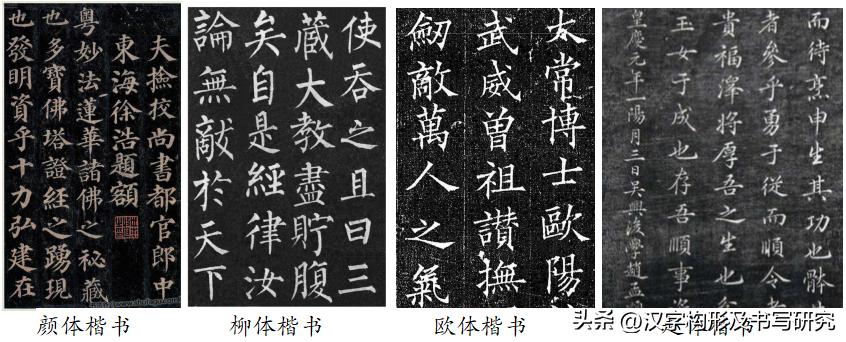 夫撿挍尚書都官郎中
東海徐浩題額
粵妙法蓮華諸佛之祕藏
也多寶佛塔證經之踴現
也發明資乎十力弘建在
使吞之且曰三
蔵大教盡貯腹
矣自是經律汝
論無敵於天下
太常博士歐陽
武威曾祖讃撫
劒敵萬人之氣
而待烹申生其功也體
者參乎勇于從而順令者
貴福澤將厚吾之生也
玉女于成也存吾順事
皇慶元年一陽月三日吳興後學趙孟
www.shufagu.com
颜体楷书
柳体楷书
欧体楷书
头条 @汉字构形及书写研究